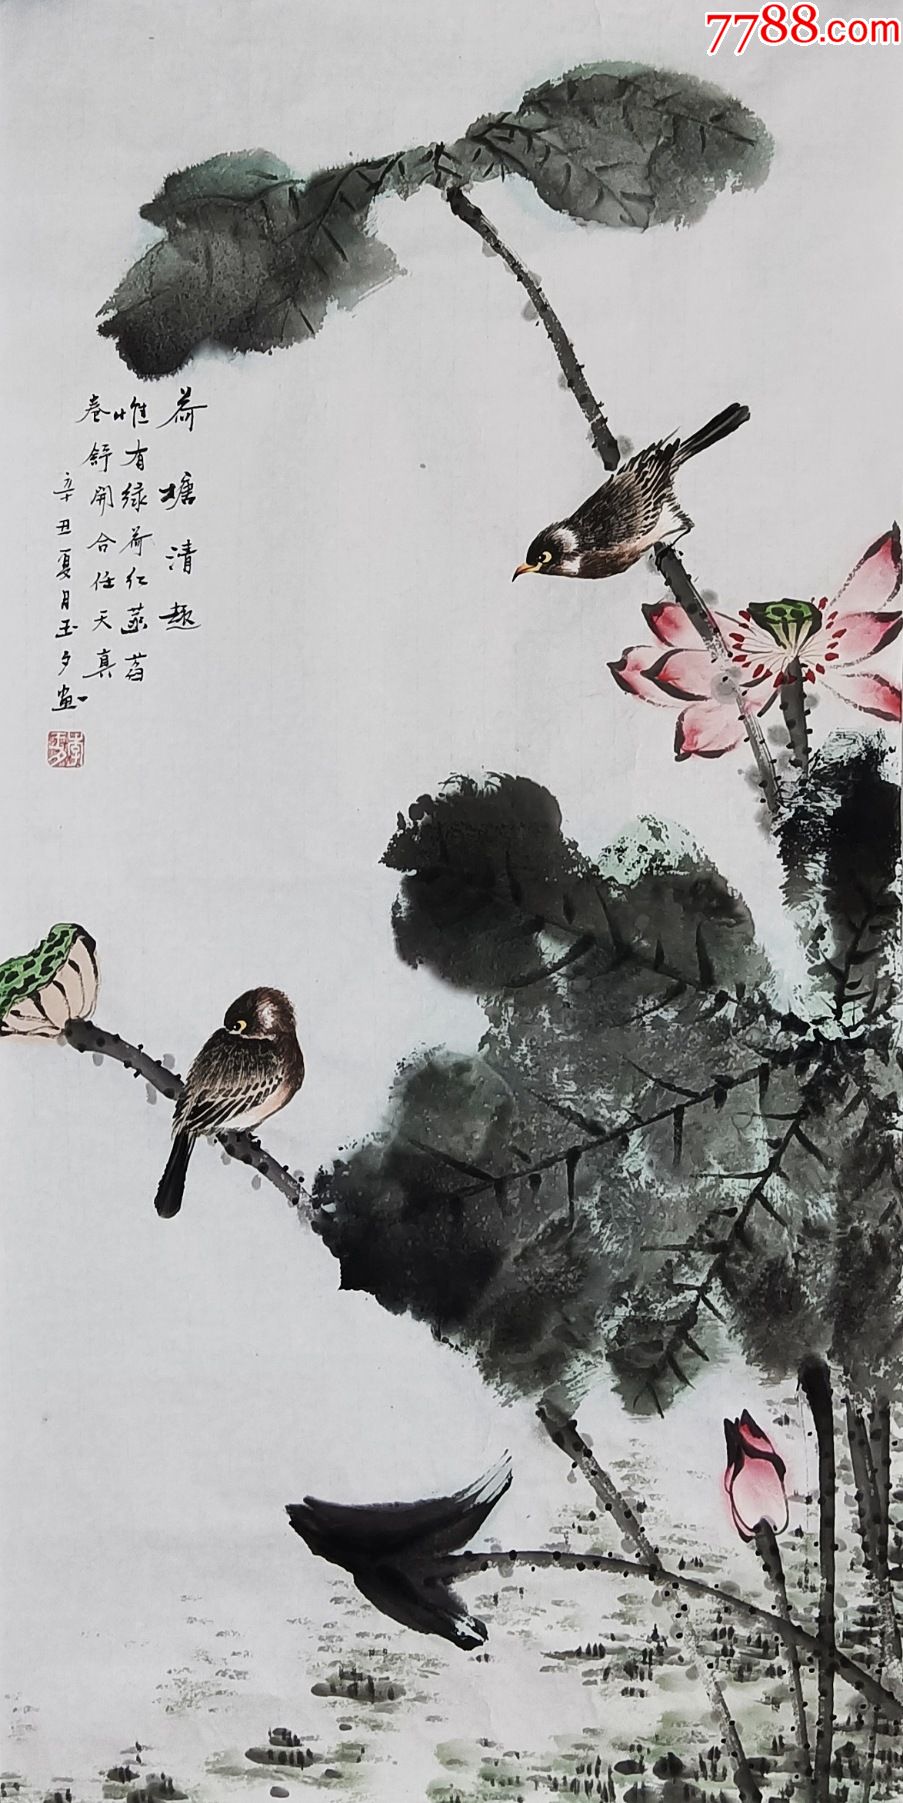 7788.com
荷塘清趣
惟有绿荷红菡萏
卷舒開合任天真
辛丑夏月玉夕畫